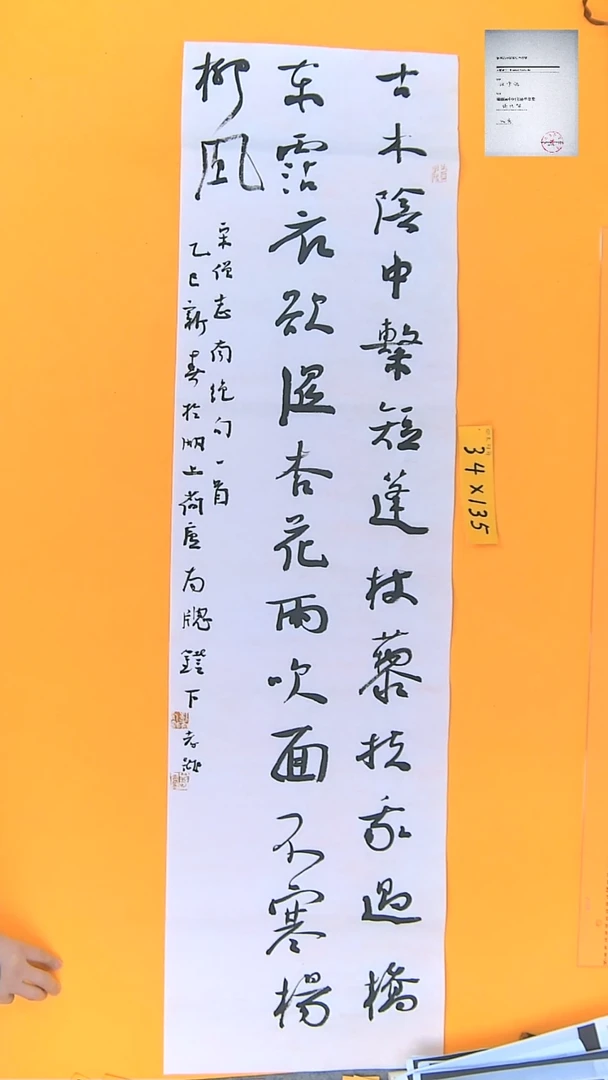 古木陰中繫短蓬杖藜扶我過橋
東霑衣欲濕杏花雨吹面不寒楊
柳風
宋僧志南绝句一首
乙巳新春於湖上尚廬南牕鐙下 志
34×135